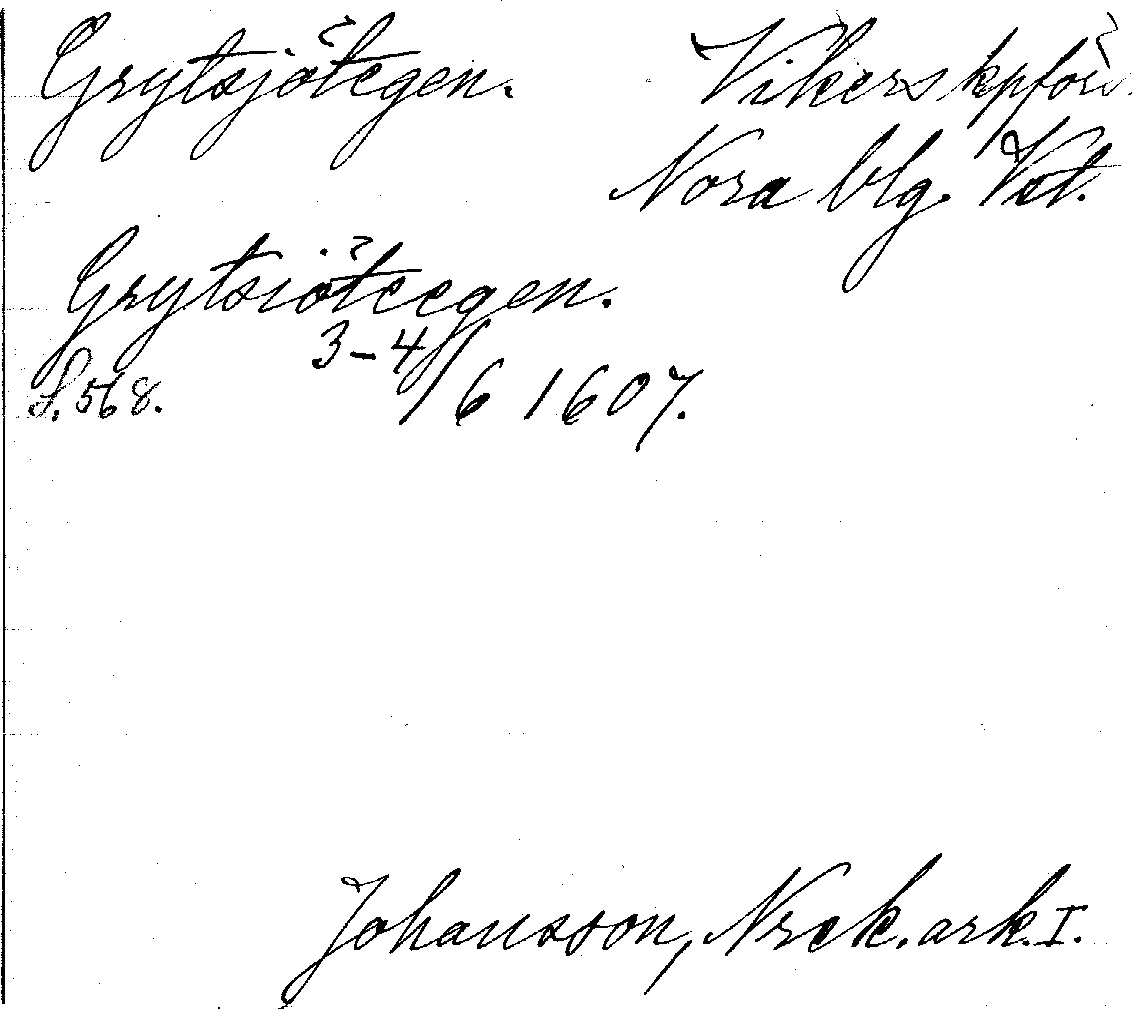 Grytsjötegen. Vikers kpför.
Nora blg. Vstl.
Grytsiöteegen.
3-4/6 1607.
S. 568.
Johansson, Nrck. ark. I.